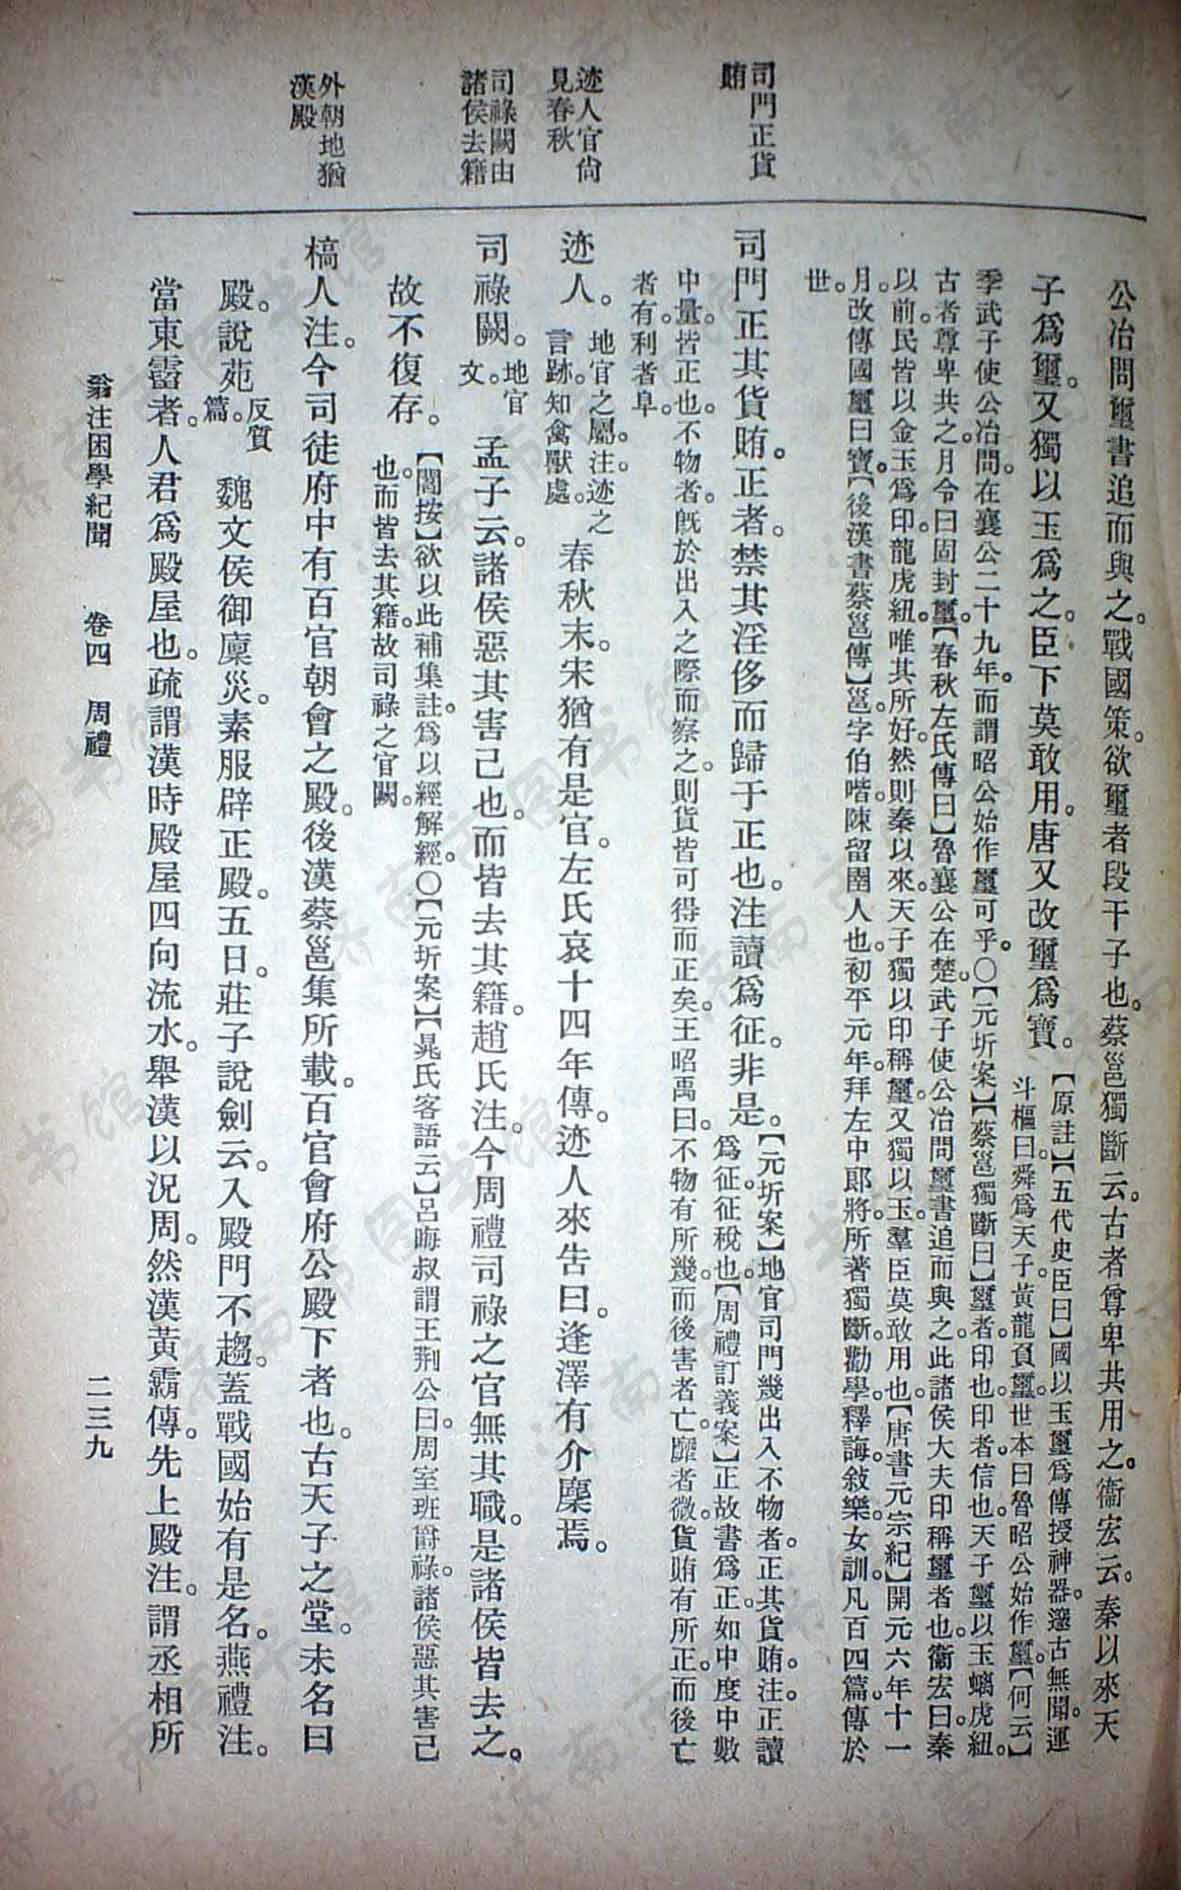 公冶問璽書追而與之。戰國策。欲璽者段干子也。蔡邕獨斷云。古者尊卑共用之。衞宏云。秦以來天
子爲璽。又獨以玉爲之。臣下莫敢用。唐又改璽爲寶。【原註】【五代史臣曰】國以玉璽爲傳授神器。邃古無聞。運
斗樞曰。舜爲天子。黃龍負璽。世本曰魯昭公始作璽。【何云】
季武子使公冶問。在襄公二十九年。而謂昭公始作璽可乎。〇【元圻案】【蔡邕獨斷曰】璽者。印也。印者。信也。天子璽以玉螭虎紐。
古者尊卑共之。月令曰固封璽。【春秋左氏傳曰】魯襄公在楚。武子使公冶問璽書追而與之。此諸侯大夫印稱璽者也。衞宏曰。秦
以前。民皆以金玉爲印。龍虎紐。唯其所好。然則秦以來。天子獨以印稱璽。又獨以玉。羣臣莫敢用也。【唐書元宗紀】開元六年十一
月。改傳國璽曰寶。【後漢書蔡邕傳】邕字伯喈。陳留圉人也。初平元年。拜左中郞將。所著獨斷。勸學。釋誨。敍樂。女訓。凡百四篇。傳於
世。
司門正貨
賄
司門正其貨賄。正者。禁其淫侈而歸于正也。注讀爲征。非是。【元圻案】地官司門幾出入不物者。正其貨賄。注。正讀
爲征。征稅也。【周禮訂義案】正故書爲正。如中度中數
中量。皆正也。不物者。旣於出入之際而察之。則貨皆可得而正矣。王昭禹曰。不物有所幾。而後害者亡。靡者微。貨賄有所正。而後亡
者有。利者阜。
迹人官尙
見春秋
迹人。地官之屬。注。迹之
言跡。知禽獸處。春秋末。宋猶有是官。左氏哀十四年傳。迹人來吿曰。逢澤有介麇焉。
司祿闕由
諸侯去籍
司祿闕。地官
文。孟子云。諸侯惡其害己也。而皆去其籍。趙氏注。今周禮司祿之官無其職。是諸侯皆去之。
故不復存。【閻按】欲以此補集註。爲以經解經。〇【元圻案】【晁氏客語云】呂晦叔謂王荆公曰。周室班爵祿。諸侯惡其害己
也。而皆去其籍。故司祿之官闕。
外朝地猶
漢殿
槁人注。今司徒府中有百官朝會之殿。後漢蔡邕集所載。百官會府公殿下者也。古天子之堂。未名曰
殿。說苑反質
篇。魏文侯御廩災。素服辟正殿。五日。莊子說劍云。入殿門不趨。蓋戰國始有是名。燕禮注。
當東霤者。人君爲殿屋也。疏謂漢時殿屋四向流水。舉漢以況周。然漢黃霸傳。先上殿注。謂丞相所
翁注困學紀聞　卷四　周禮　二三九